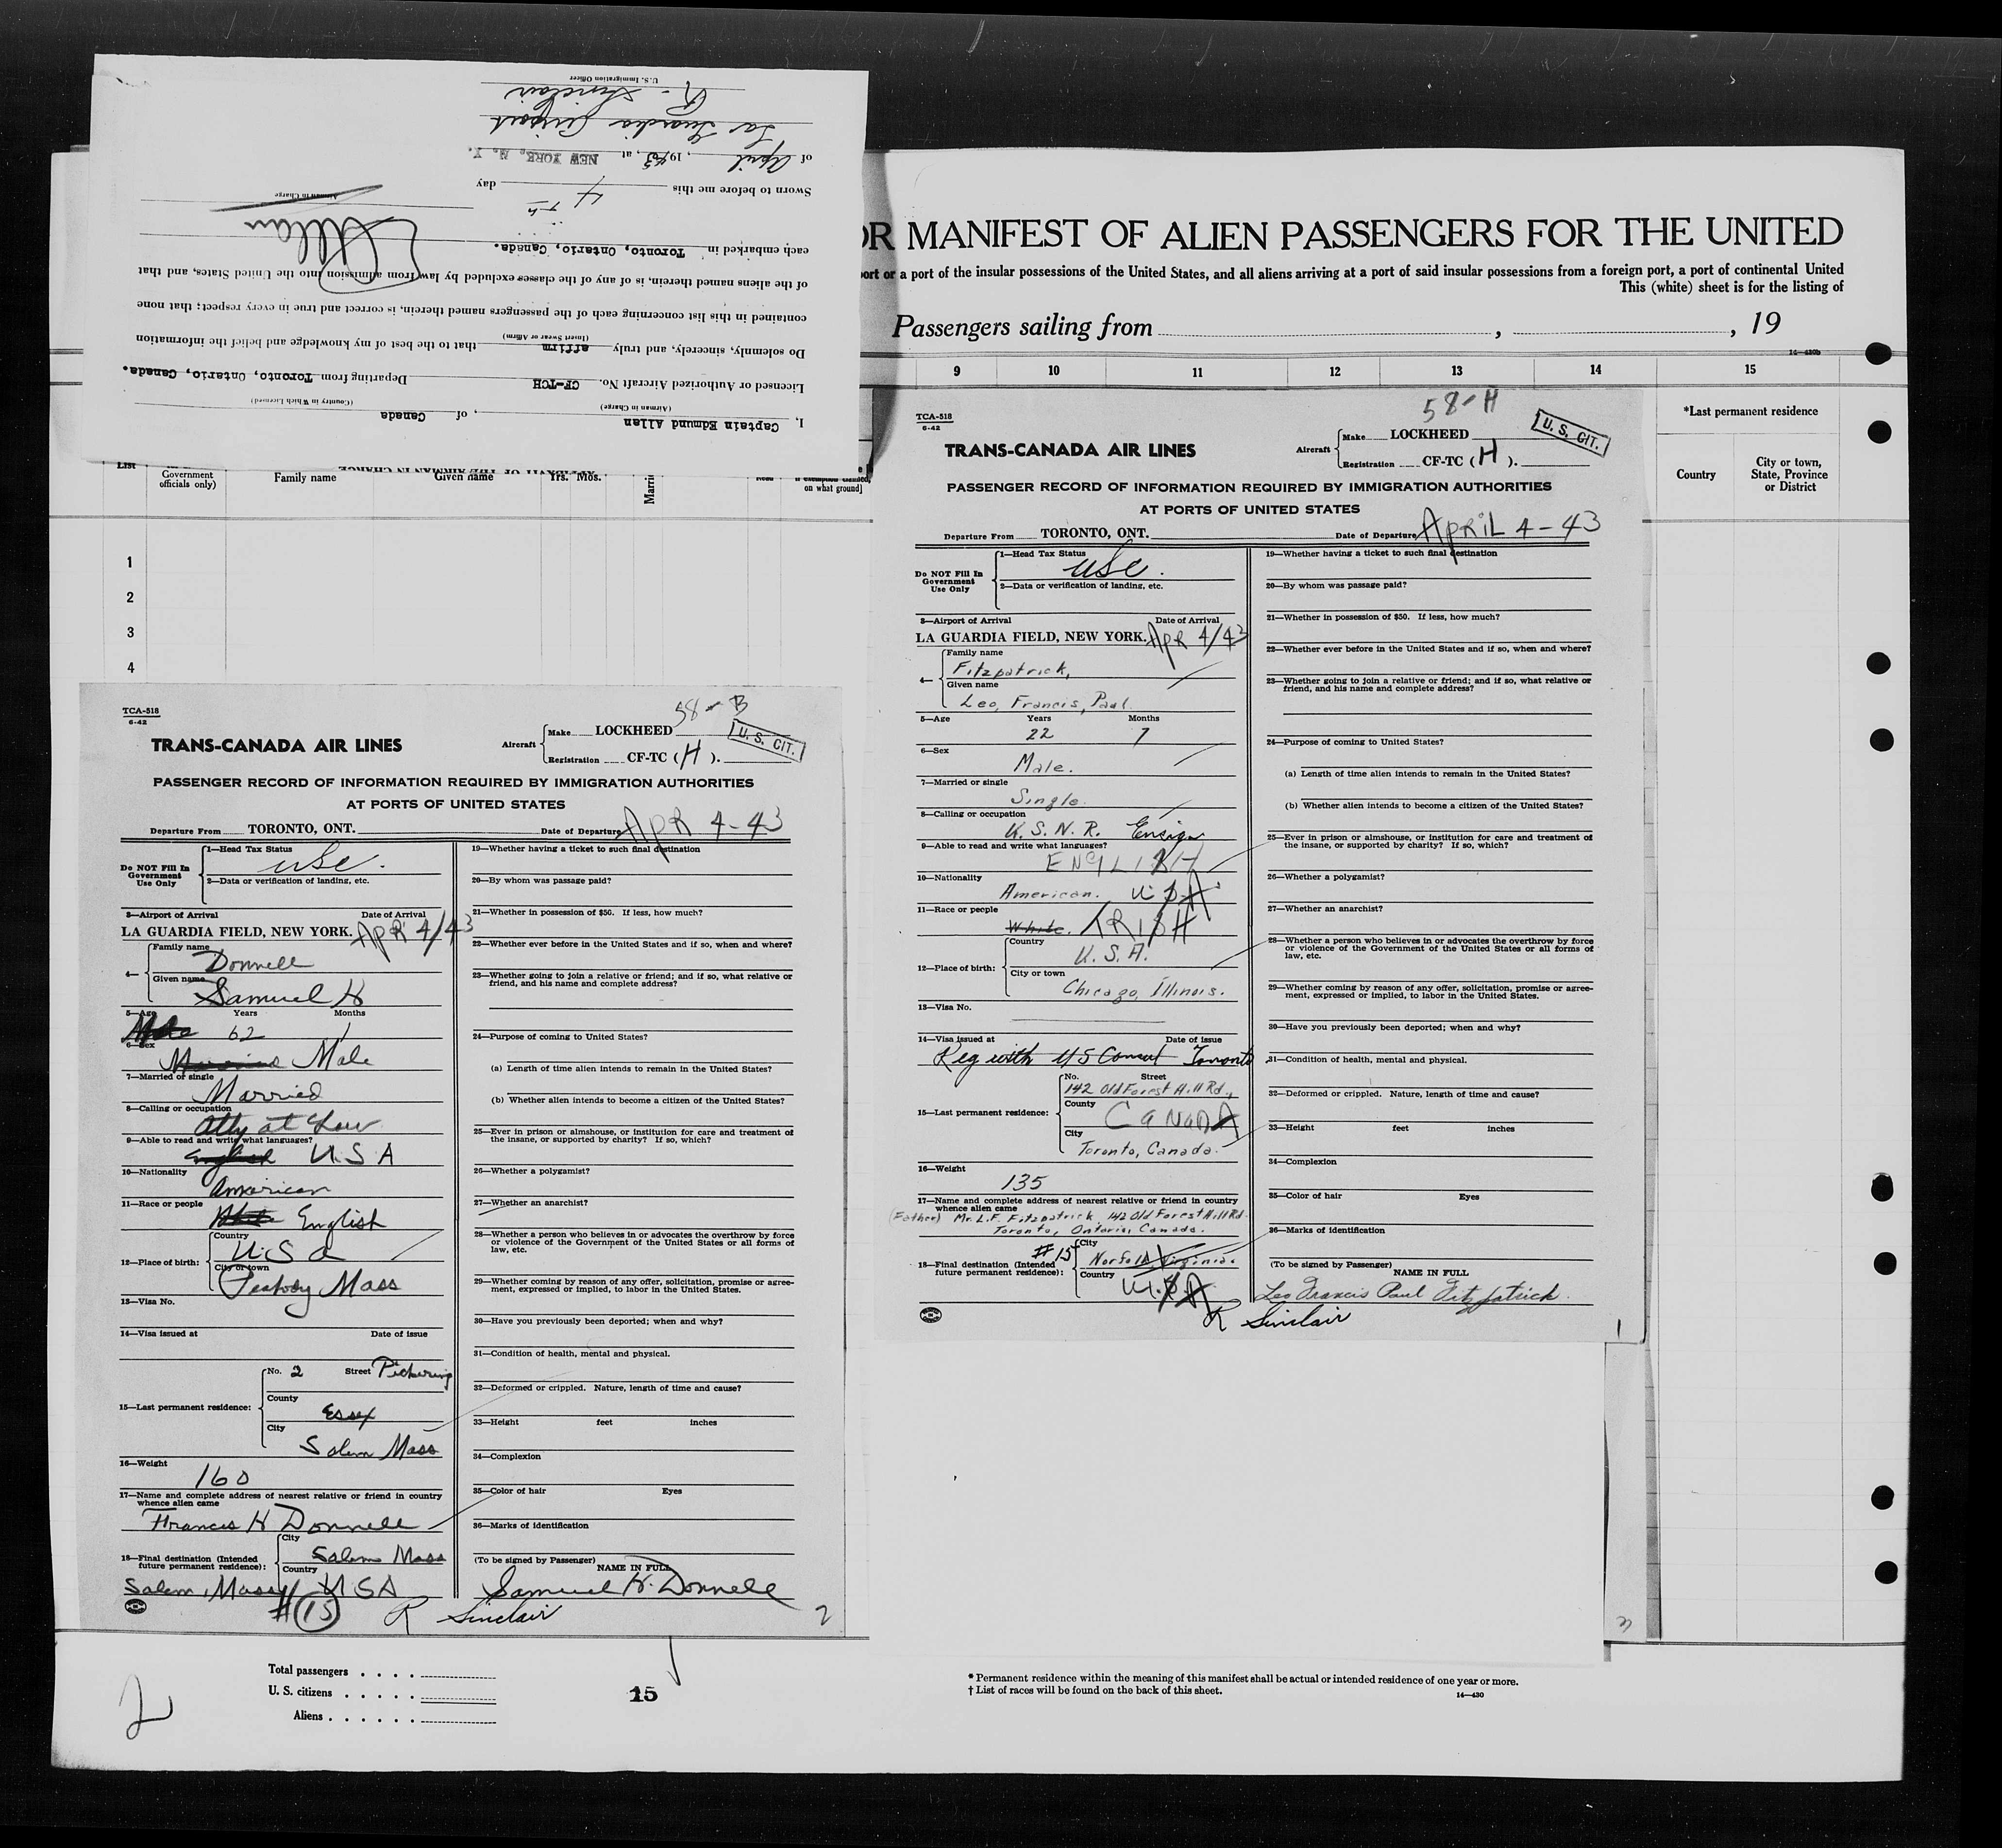 U.S. Immigration Officer
R. Sinclair
La Guardia Airport
of April, 1943, at NEW YORK, N. Y.
Sworn to before me this 4th day
Airman in Charge
E Allan
each embarked in Toronto, Ontario, Canada.
of the aliens named therein, is of any of the classes excluded by law from admission into the United States, and that
contained in this list concerning each of the passengers named therein, is correct and true in every respect; that none
Do solemnly, sincerely, and truly affirm that to the best of my knowledge and belief the information
(Insert Swear or Affirm)
Licensed or Authorized Aircraft No. CF-TCH Departing from Toronto, Ontario, Canada.
(Airman in Charge) (Country in Which Licensed)
I, Captain Edmund Allan, of Canada
AFFIDAVIT OF THE AIRMAN IN CHARGE
OR MANIFEST OF ALIEN PASSENGERS FOR THE UNITED
port or a port of the insular possessions of the United States, and all aliens arriving at a port of said insular possessions from a foreign port, a port of continental United
This (white) sheet is for the listing of
Passengers sailing from , , 19
14—430b
9 10 11 12 13 14 15
*Last permanent residence
Country
City or town, State, Province or District
List
Government officials only)
Family name
Given name
Yrs. Mos.
on what ground]
1
2
3
4
TCA-518
6-42
58-B
TRANS-CANADA AIR LINES
Aircraft Make LOCKHEED
Registration CF-TC (H).
U. S. CIT.
PASSENGER RECORD OF INFORMATION REQUIRED BY IMMIGRATION AUTHORITIES
AT PORTS OF UNITED STATES
Departure From TORONTO, ONT. Date of Departure APR 4-43
Do NOT Fill In Government Use Only
1—Head Tax Status
USC.
2—Data or verification of landing, etc.
3—Airport of Arrival Date of Arrival
LA GUARDIA FIELD, NEW YORK. APR 4/43
4— Family name
Donnell
Given name
Samuel H
5—Age Years Months
Male 62 1
6—Sex
Married Male
7—Married or single
Married
8—Calling or occupation
Atty at Law
9—Able to read and write what languages?
English U.S A
10—Nationality
American
11—Race or people
White English
12—Place of birth: Country
U.S a
City or town
Peabody Mass
13—Visa No.
14—Visa issued at Date of issue
15—Last permanent residence: No. 2 Street Pickering
County
Essex
City
Salem Mass
16—Weight
160
17—Name and complete address of nearest relative or friend in country whence alien came
Francis H Donnell
18—Final destination (Intended future permanent residence): City
Salem Mass
Country
Salem, Mass USA
#(15) R Sinclair
19—Whether having a ticket to such final destination
20—By whom was passage paid?
21—Whether in possession of $50. If less, how much?
22—Whether ever before in the United States and if so, when and where?
23—Whether going to join a relative or friend; and if so, what relative or friend, and his name and complete address?
24—Purpose of coming to United States?
(a) Length of time alien intends to remain in the United States?
(b) Whether alien intends to become a citizen of the United States?
25—Ever in prison or almshouse, or institution for care and treatment of the insane, or supported by charity? If so, which?
26—Whether a polygamist?
27—Whether an anarchist?
28—Whether a person who believes in or advocates the overthrow by force or violence of the Government of the United States or all forms of law, etc.
29—Whether coming by reason of any offer, solicitation, promise or agreement, expressed or implied, to labor in the United States.
30—Have you previously been deported; when and why?
31—Condition of health, mental and physical.
32—Deformed or crippled. Nature, length of time and cause?
33—Height feet inches
34—Complexion
35—Color of hair Eyes
36—Marks of identification
(To be signed by Passenger)
NAME IN FULL
Samuel H. Donnell
2
TCA-518
6-42
58-H
TRANS-CANADA AIR LINES
Aircraft Make LOCKHEED
Registration CF-TC (H).
U. S. CIT.
PASSENGER RECORD OF INFORMATION REQUIRED BY IMMIGRATION AUTHORITIES
AT PORTS OF UNITED STATES
Departure From TORONTO, ONT. Date of Departure APRIL 4-43
Do NOT Fill In Government Use Only
1—Head Tax Status
USC.
2—Data or verification of landing, etc.
3—Airport of Arrival Date of Arrival
LA GUARDIA FIELD, NEW YORK. APR 4/43
4— Family name
Fitzpatrick,
Given name
Leo, Francis, Paul.
5—Age Years Months
22 7
6—Sex
Male.
7—Married or single
Single.
8—Calling or occupation
U. S. N. R. Ensign
9—Able to read and write what languages?
ENGLISH
10—Nationality
American. U.S.A.
11—Race or people
White. IRISH
12—Place of birth: Country
U. S. A.
City or town
Chicago, Illinois.
13—Visa No.
14—Visa issued at Date of issue
Reg with US Consul Toronto
15—Last permanent residence: No. Street
142 Old Forest Hill Rd.,
County
CANADA
City
Toronto, Canada.
16—Weight
135
17—Name and complete address of nearest relative or friend in country whence alien came
(Father) Mr. L.F. Fitzpatrick 142 Old Forest Hill Rd.
Toronto, Ontario, Canada.
#15
18—Final destination (Intended future permanent residence): City
Norfolk, Virginia
Country
U.S.A
R Sinclair
19—Whether having a ticket to such final destination
20—By whom was passage paid?
21—Whether in possession of $50. If less, how much?
22—Whether ever before in the United States and if so, when and where?
23—Whether going to join a relative or friend; and if so, what relative or friend, and his name and complete address?
24—Purpose of coming to United States?
(a) Length of time alien intends to remain in the United States?
(b) Whether alien intends to become a citizen of the United States?
25—Ever in prison or almshouse, or institution for care and treatment of the insane, or supported by charity? If so, which?
26—Whether a polygamist?
27—Whether an anarchist?
28—Whether a person who believes in or advocates the overthrow by force or violence of the Government of the United States or all forms of law, etc.
29—Whether coming by reason of any offer, solicitation, promise or agreement, expressed or implied, to labor in the United States.
30—Have you previously been deported; when and why?
31—Condition of health, mental and physical.
32—Deformed or crippled. Nature, length of time and cause?
33—Height feet inches
34—Complexion
35—Color of hair Eyes
36—Marks of identification
(To be signed by Passenger)
NAME IN FULL
Leo Francis Paul Fitzpatrick.
1
3
2
Total passengers
U. S. citizens
Aliens
15
* Permanent residence within the meaning of this manifest shall be actual or intended residence of one year or more.
† List of races will be found on the back of this sheet.
14—430